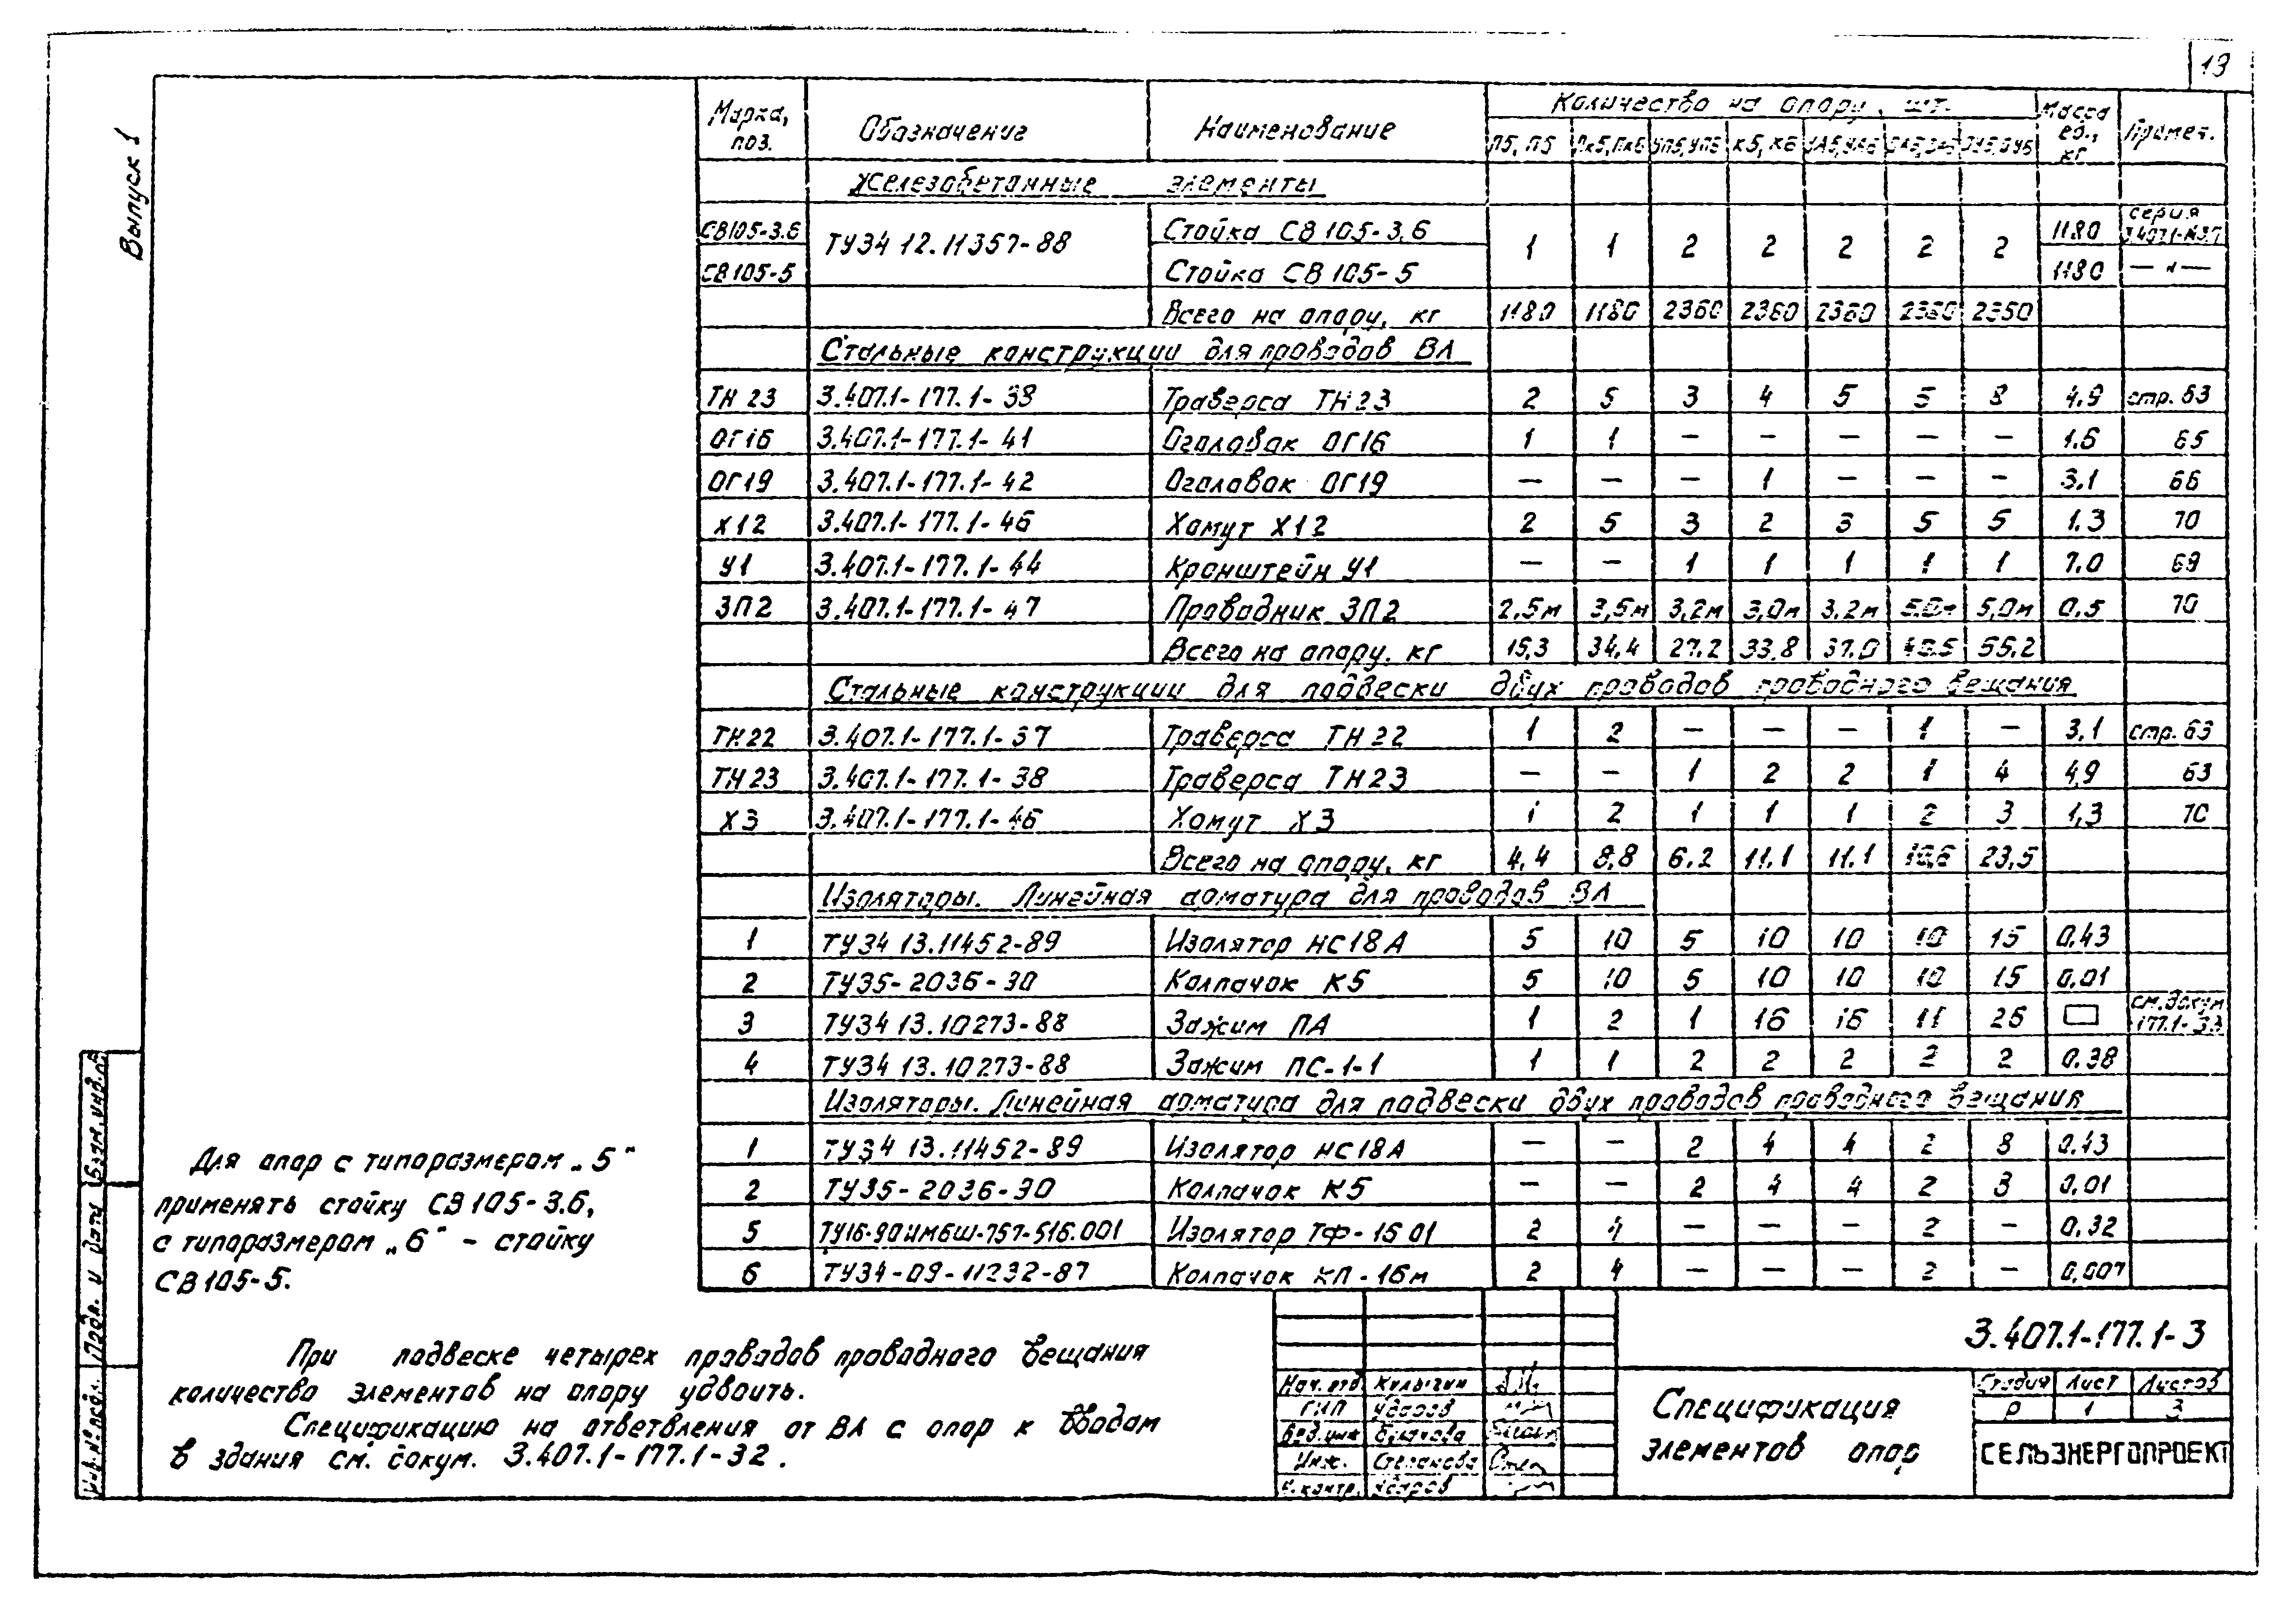 19
Выпуск 1
Марка, поз. Обозначение Наименование Количество на опору, шт. Масса ед., кг Примеч.
П5, П6 Пк5, Пк6 УП5, УП6 К5, К6 УА5, УА6
Железобетонные элементы
СВ105-3.6 ТУ34 12.11357-88 Стойка СВ 105-3.6 1 1 2 2 2 2 2 1180 серия
СВ105-5 Стойка СВ 105-5 1180 — " —
Всего на опору, кг 1180 1180 2360 2360 2360 2360 2360
Стальные конструкции для проводов ВЛ
ТН 23 3.407.1-177.1-38 Траверса ТН23 2 5 3 4 5 5 8 4,9 стр. 63
ОГ16 3.407.1-177.1-41 Оголовок ОГ16 1 1 — — — — — 1.6 65
ОГ19 3.407.1-177.1-42 Оголовок ОГ19 — — — 1 — — — 3.1 66
Х12 3.407.1-177.1-46 Хомут Х12 2 5 3 2 3 5 5 1.3 70
У1 3.407.1-177.1-44 Кронштейн У1 — — 1 1 1 1 1 7.0 69
ЗП2 3.407.1-177.1-47 Проводник ЗП2 2,5м 3,5м 3,2м 3,0м 3,2м 5,0м 5,0м 0.5 70
Всего на опору, кг 15,3 34,4 27.2 33.8 37.0 40.5 55,2
Стальные конструкции для подвески двух проводов проводного вещания
ТН22 3.407.1-177.1-37 Траверса ТН22 1 2 — — — 1 — 3,1 стр. 63
ТН23 3.407.1-177.1-38 Траверса ТН23 — — 1 2 2 1 4 4,9 63
Х3 3.407.1-177.1-46 Хомут Х3 1 2 1 1 1 2 3 1,3 70
Всего на опору, кг 4,4 8,8 6.2 11.1 11.1 10,6 23,5
Изоляторы. Линейная арматура для проводов ВЛ
1 ТУ34 13.11452-89 Изолятор НС18А 5 10 5 10 10 10 15 0,43
2 ТУ35-2036-90 Колпачок К5 5 10 5 10 10 10 15 0,01
3 ТУ34 13.10273-88 Зажим ПА 1 2 1 16 16 11 26 см. докум 177.1-33
4 ТУ34 13.10273-88 Зажим ПС-1-1 1 1 2 2 2 2 2 0.38
Изоляторы. Линейная арматура для подвески двух проводов проводного вещания
1 ТУ34 13.11452-89 Изолятор НС18А — — 2 4 4 2 8 0.43
2 ТУ35-2036-90 Колпачок К5 — — 2 4 4 2 8 0,01
5 ТУ16-90ИМБШ-757-516.001 Изолятор ТФ-16 01 2 4 — — — 2 — 0,32
6 ТУ34-09-11232-87 Колпачок КП-16м 2 4 — — — 2 — 0,007
Для опор с типоразмером „5"
применять стойку СВ105-3.6,
с типоразмером „6" - стойку
СВ105-5.
При подвеске четырех проводов проводного вещания
количество элементов на опору удвоить.
Спецификацию на ответвления от ВЛ с опор к вводам
в здания см. докум. 3.407.1-177.1-32.
Взам. инв. №
Подп. и дата
Инв. № подл.
3.407.1-177.1-3
Нач. отд Кулыгин
ГИП Ударов
Вед. инж
Инж. Степанова
Н. контр. Ударов
Спецификация
элементов опор
Стадия Лист Листов
Р 1 3
СЕЛЬЭНЕРГОПРОЕКТ